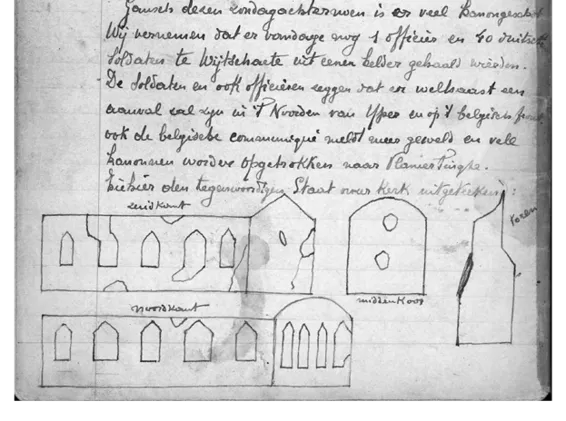 Gansch dezen zondagachternoen is er veel kanongeschut
Wij vernemen dat er vandage nog 1 officier en 40 duitsche
soldaten te Wijtschaete uit eenen kelder gehaald wierden.
De soldaten en ook officieren zeggen dat er welhaast een
aanval zal zijn in 't Noorden van Yper en op 't belgisch front
ook de belgische communiqué meldt meer geweld en vele
kanonnen worden opgetrokken naar Vlamertinghe.
hiebier den tegenwoordigen Staat onzer kerk uitgekeken:
zuidkant
toren
noordkant
middenkoor